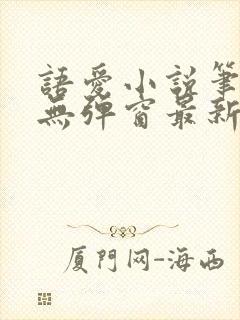 語愛小説筆
無彈窗最新
厦门网-海西